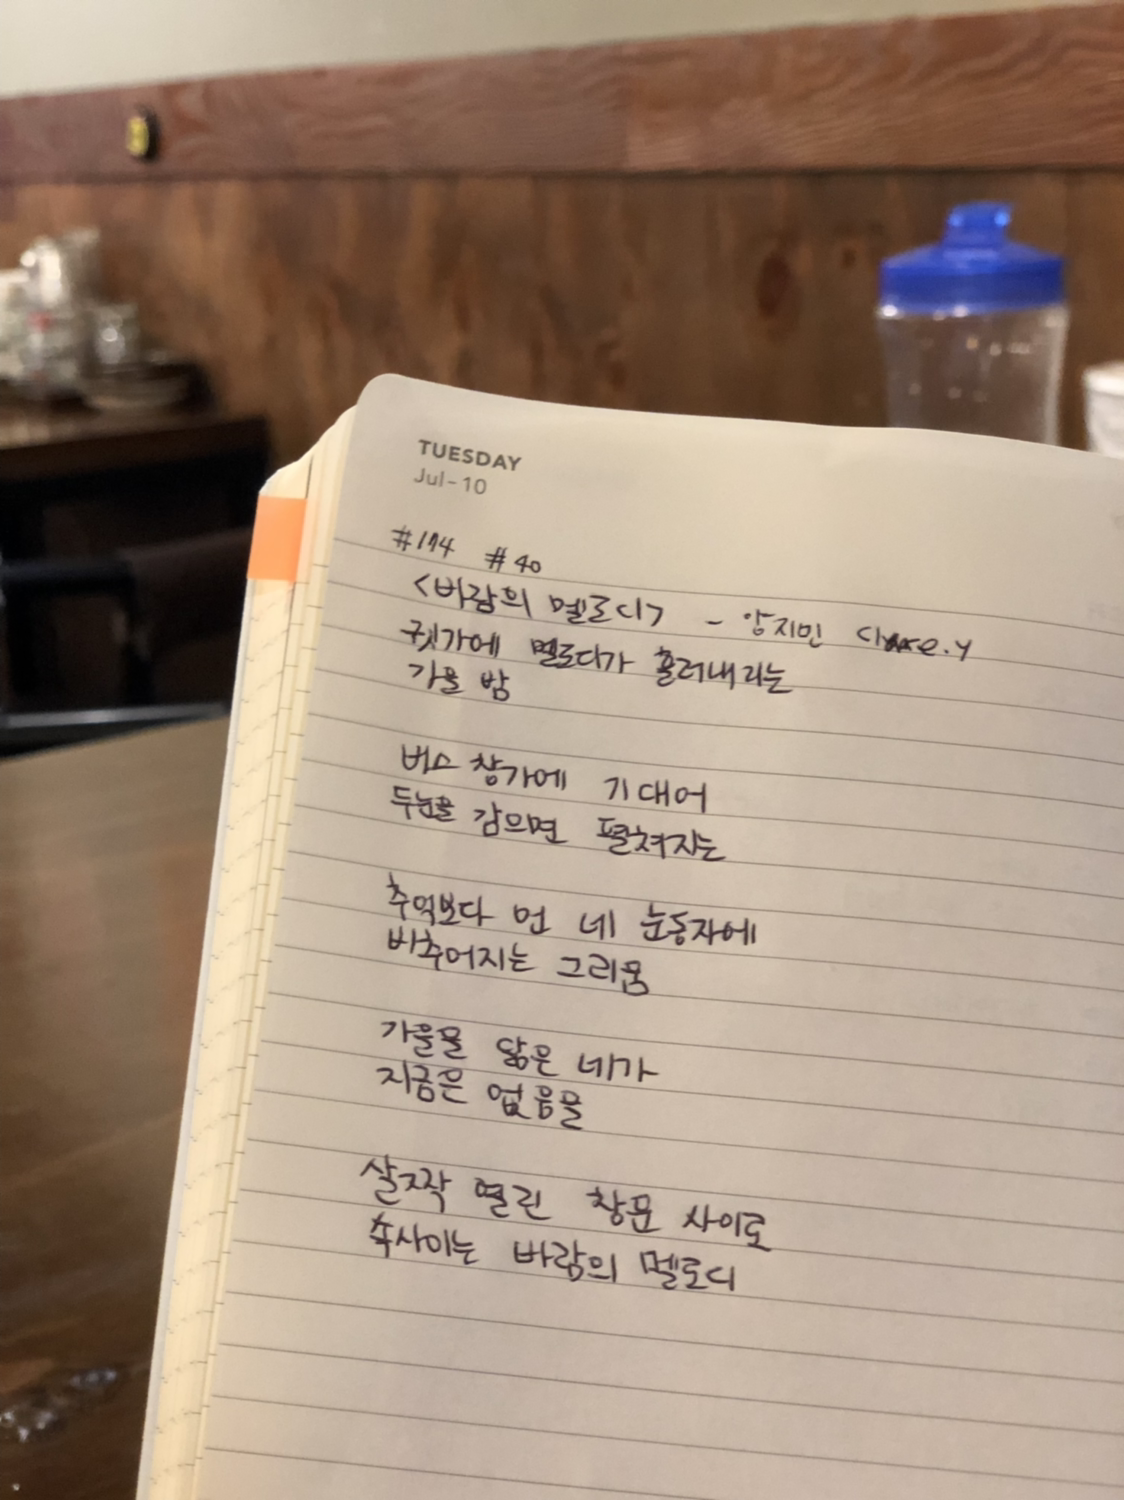 TUESDAY
Jul-10
#174 #40
<바람의 멜로디> - 양지민 Chase.Y
귓가에 멜로디가 흘러내리는
가을 밤
버스 창가에 기대어
두눈을 감으면 펼쳐지는
추억보다 먼 네 눈동자에
비추어지는 그리움
가을을 닮은 네가
지금은 없음을
살짝 열린 창문 사이로
속사이는 바람의 멜로디